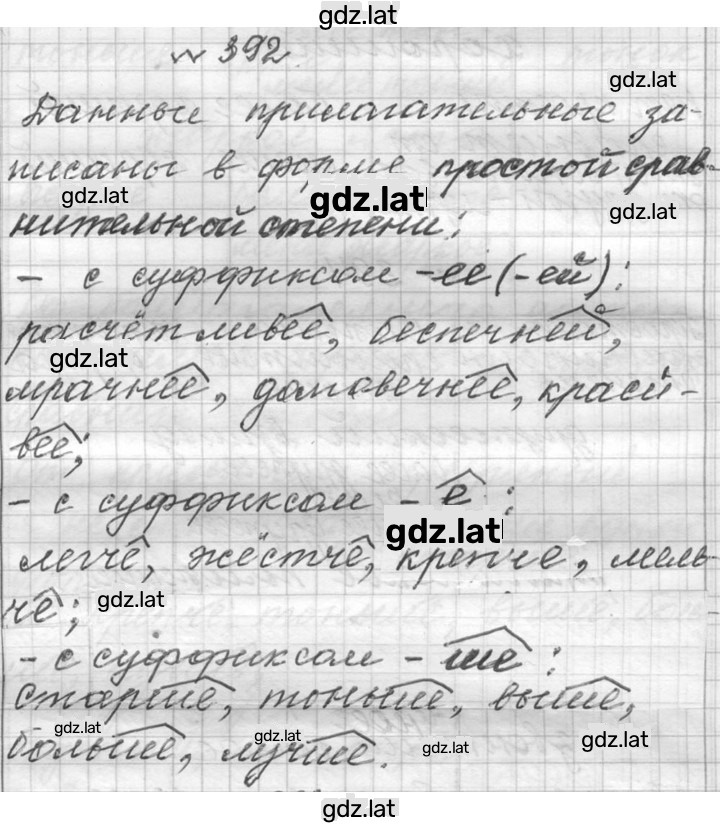 gdz.lat
№ 392
gdz.lat
Данные прилагательные за-
писаны в форме простой срав-
gdz.lat
gdz.lat
gdz.lat
нительной степени:
- с суффиксом -ее(-ей):
расчётливее, беспечней,
gdz.lat
мрачнее, долговечнее, краси-
вее;
- с суффиксом -е:
gdz.lat
легче, жёстче, крепче, мель-
gdz.lat
че;
- с суффиксом -ше:
старше, тоньше, выше,
gdz.lat
gdz.lat
gdz.lat
gdz.lat
больше, лучше.
gdz.lat